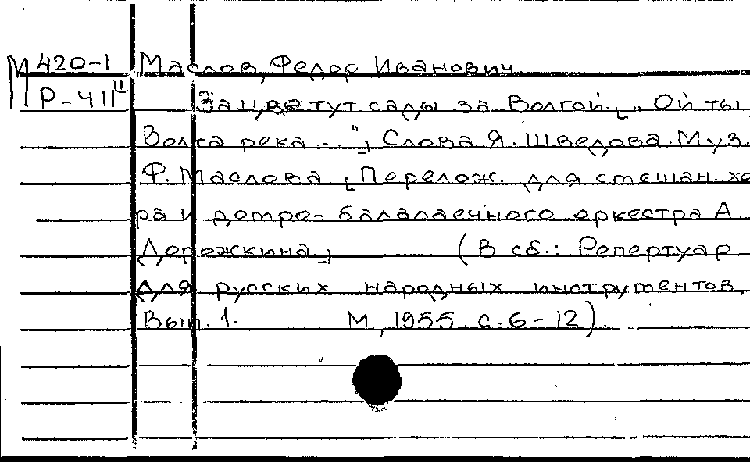 М 420-1 Маслов, Федор Иванович
Р-411 II Зацветут сады за Волгой. [„Ой ты
Волга река...“] Слова Я. Шведова. Муз.
Ф. Маслова [Перелож. для смешан. хо
ра и домро-балалаечного оркестра А
Дорожкина] (В сб.: Репертуар
для русских народных инструментов.
Вып. 1. М, 1955 с. 6-12)